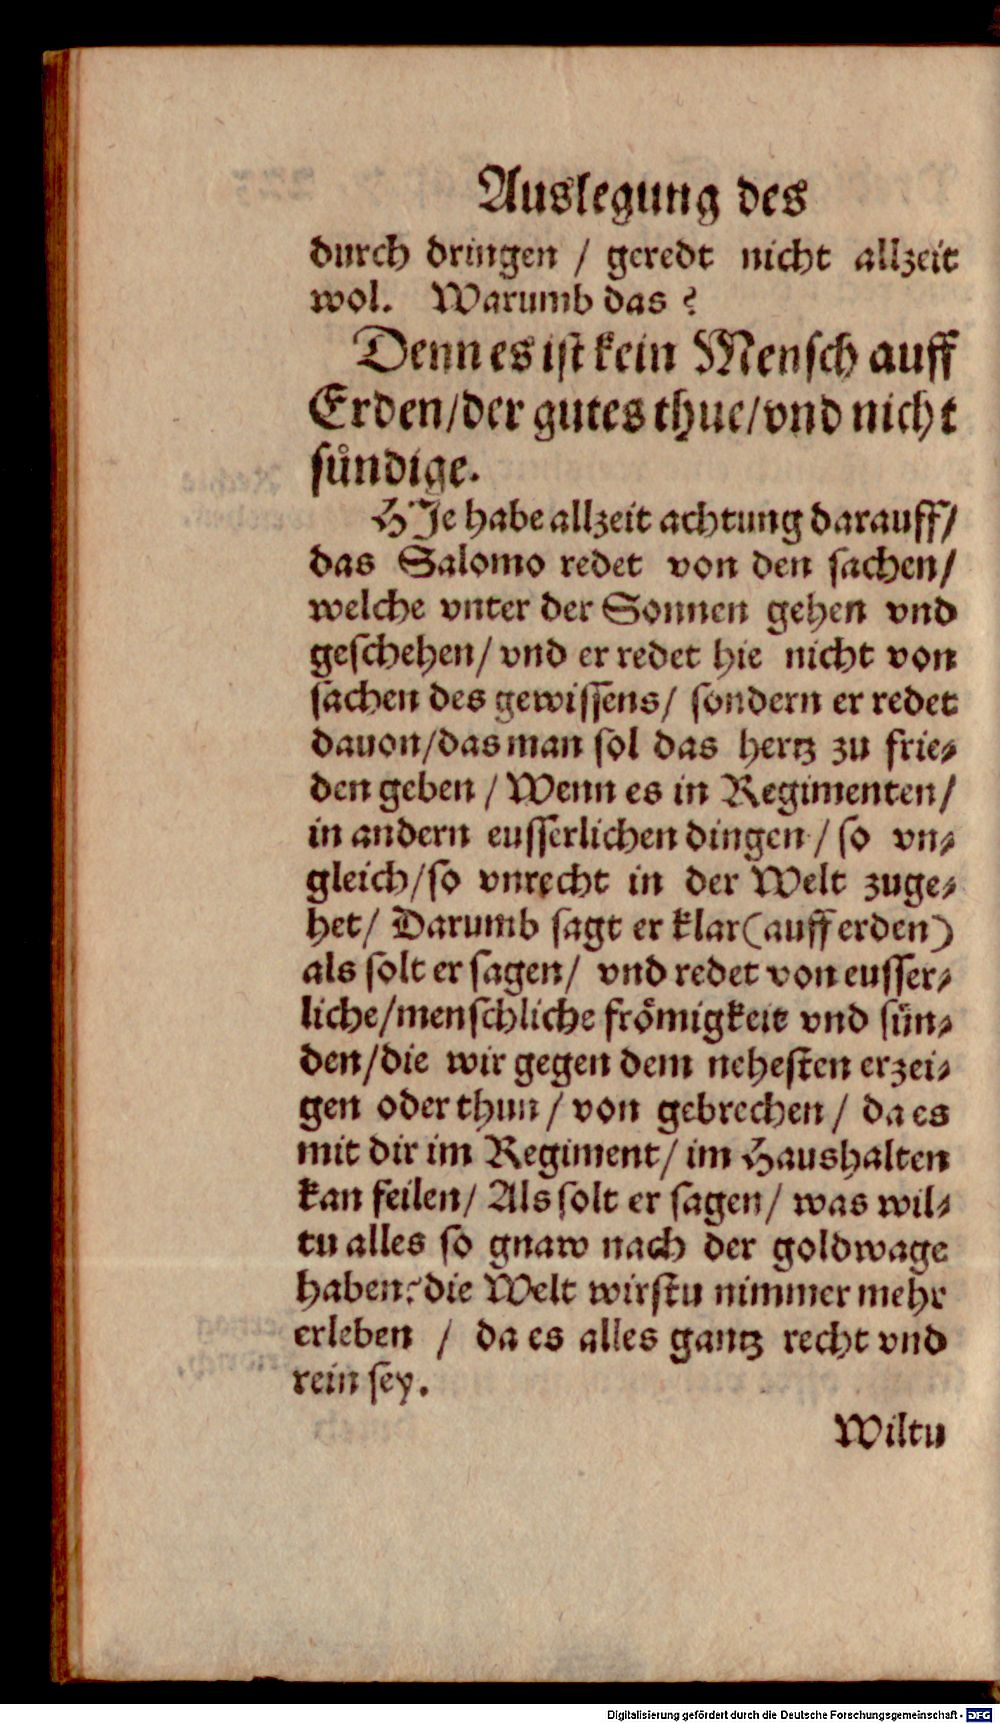 Auslegung des
durch dringen / geredt nicht allzeit
wol. Warumb das ?
Denn es ist kein Mensch auff
Erden/der gutes thue/vnd nicht
sündige.
HJe habe allzeit achtung darauff/
das Salomo redet von den sachen/
welche vnter der Sonnen gehen vnd
geschehen/ vnd er redet hie nicht von
sachen des gewissens/ sondern er redet
dauon/das man sol das hertz zu frie-
den geben / Wenn es in Regimenten/
in andern eusserlichen dingen / so vn-
gleich/so vnrecht in der Welt zuge-
het/ Darumb sagt er klar(auff erden)
als solt er sagen/ vnd redet von eusser-
liche/menschliche frömigkeit vnd sün-
den/die wir gegen dem nehesten erzei-
gen oder thun/ von gebrechen/ da es
mit dir im Regiment/ im Haushalten
kan feilen/ Als solt er sagen/ was wil-
tu alles so gnaw nach der goldwage
haben? die Welt wirstu nimmer mehr
erleben / da es alles gantz recht vnd
rein sey.
Wiltu
Digitalisierung gefördert durch die Deutsche Forschungsgemeinschaft - DFG